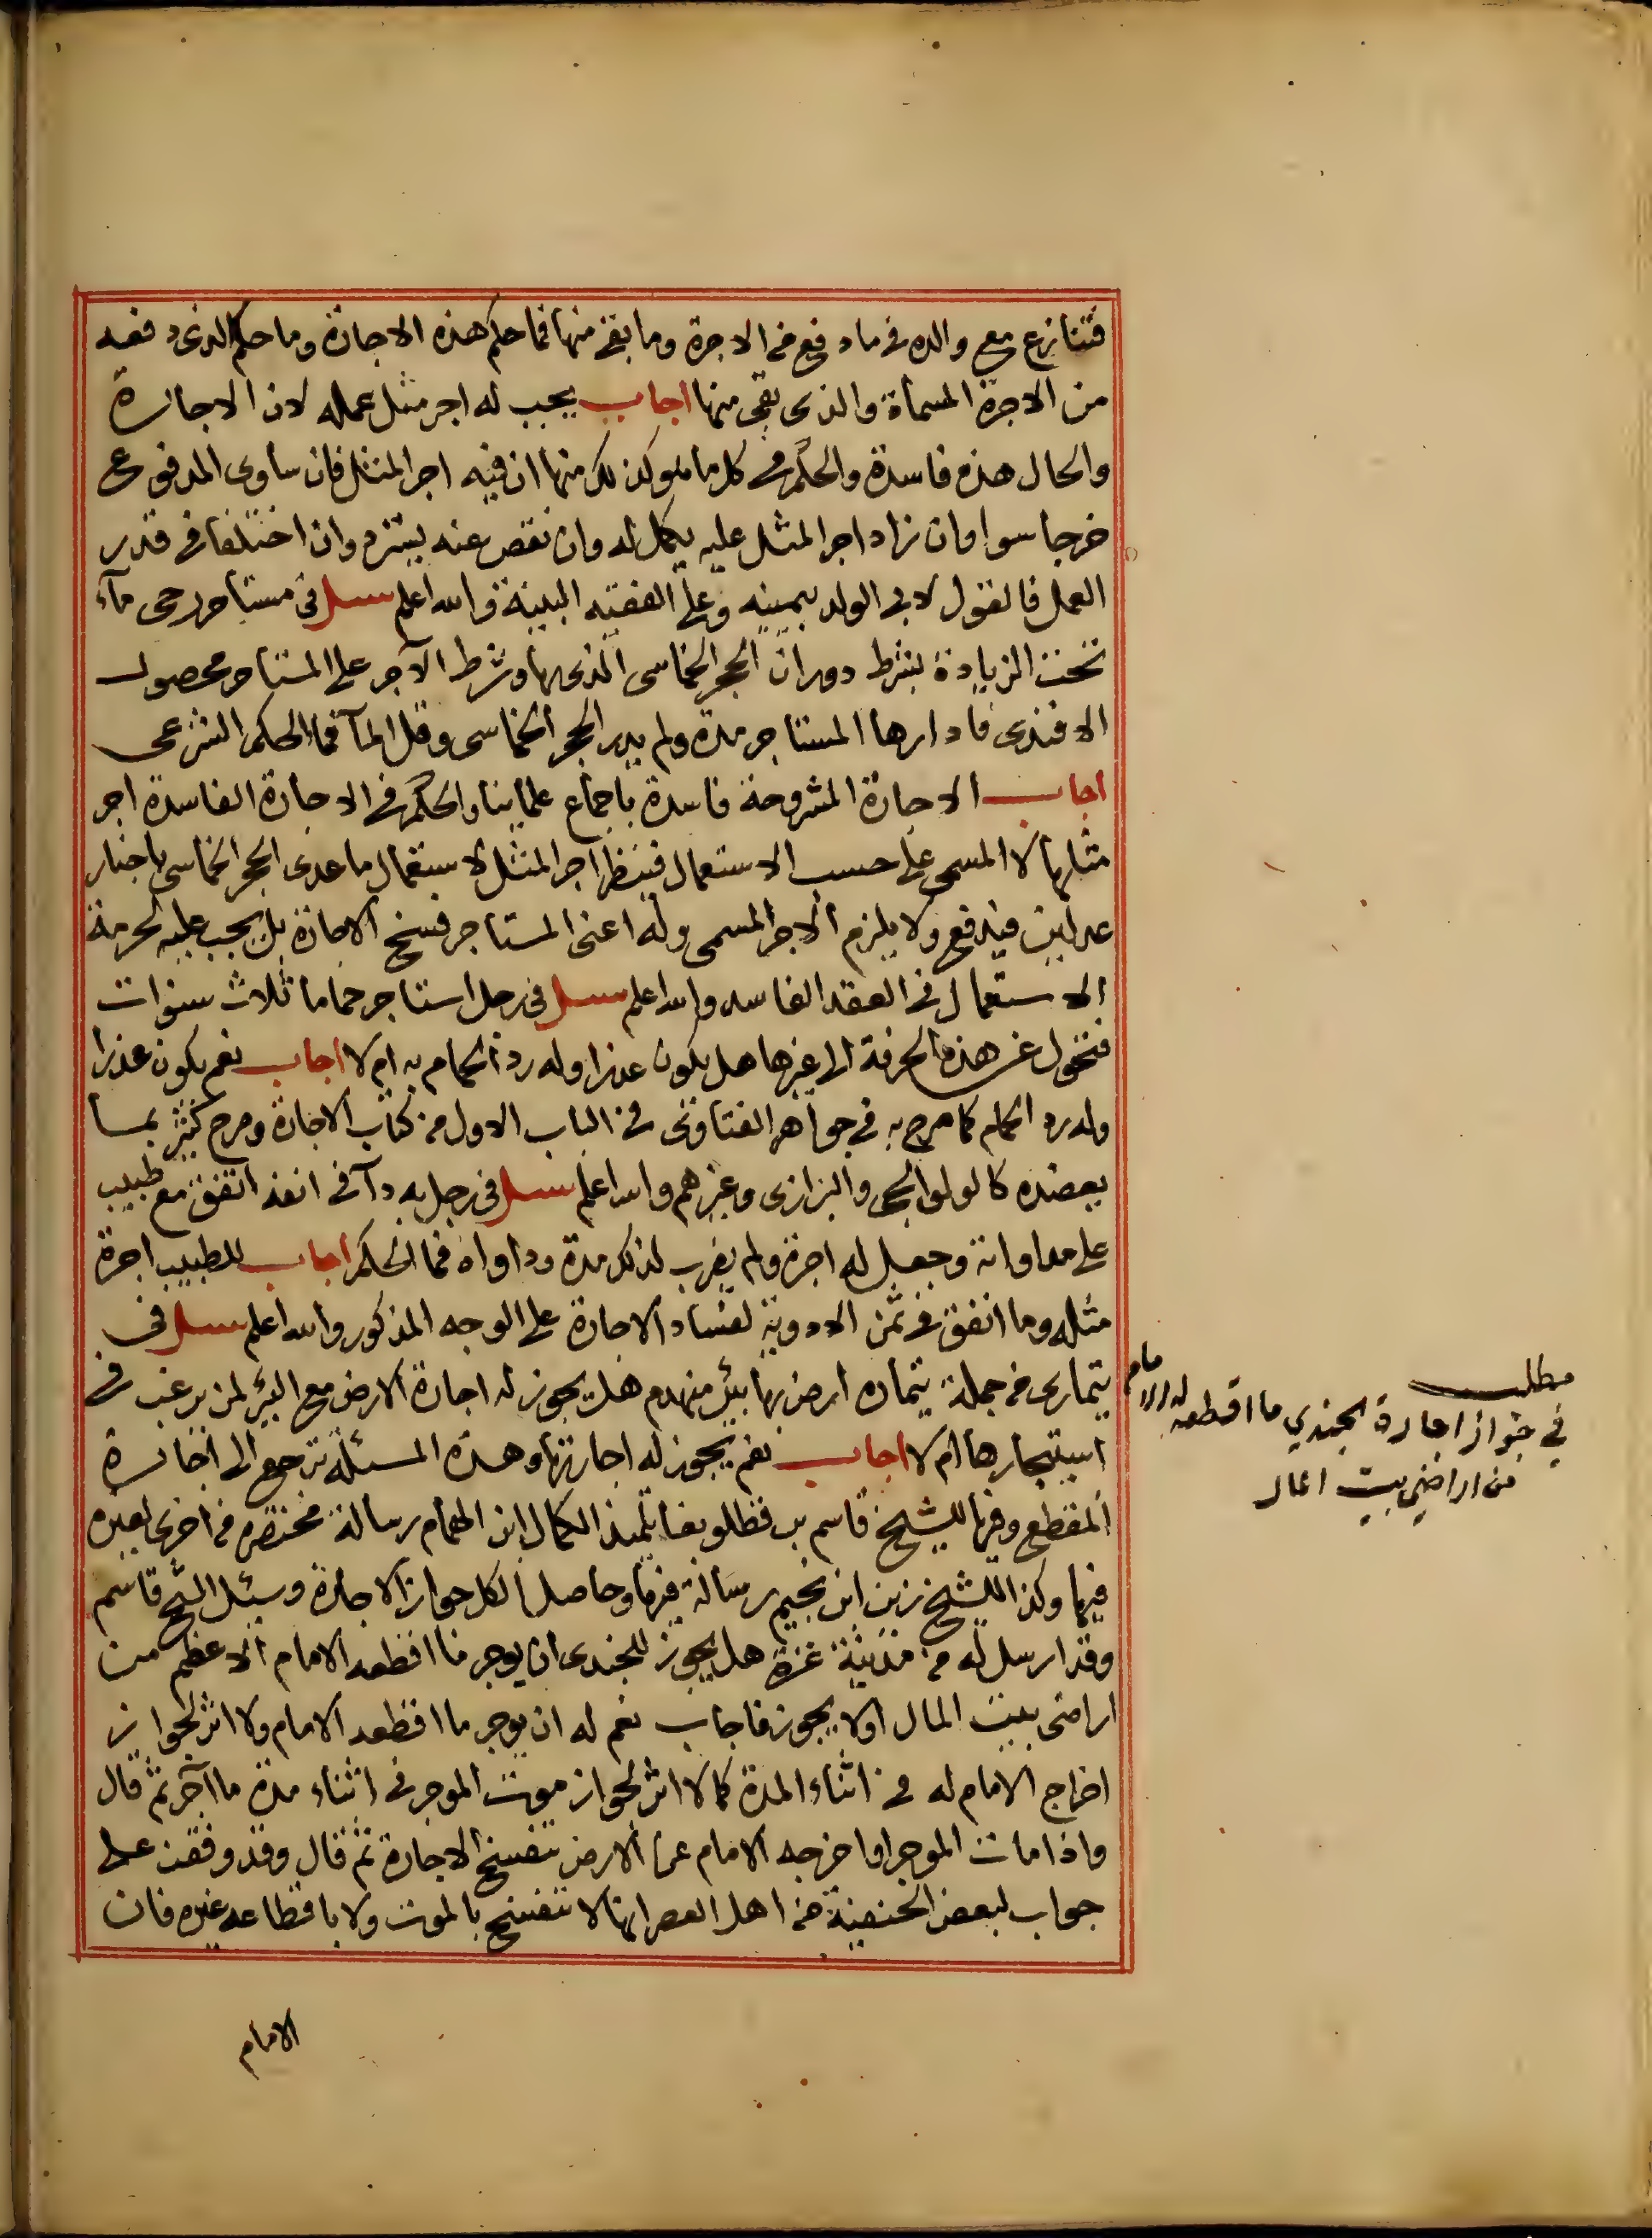 فتنازع مع والده في ما دفع من الاجرة وما بقى منها فما حكم هذه الاجارة وما حكم الذي دفعه
من الاجرة المسماة والذي بقى منها اجاب يجب له اجر مثل عمله لان الاجارة
والحال هذه فاسدة والحكم في كل ما هو كذلك منها ان فيه اجر المثل فان ساوى المدفوع
خرجا سوا وان زاد اجر المثل عليه يكمل له وان نقص عنه يسترد وان اختلفا في قدر
العمل فالقول لابي الولد بيمينه وعلى الفقيه البينة والله اعلم سئل في مستاجر رحى ماء
تحت الزيادة بشرط دوران الحجر الخماسى الذى بها وشرط الآجر على المستاجر محصول
الافندى فادارها المستاجر مدة ولم يدر الحجر الخماسى وقل المآ فما الحكم الشرعى
اجاب الاجارة المشروحة فاسدة باجماع علمائنا والحكم في الاجارة الفاسدة اجر
مثلها لا المسمى على حسب الاستعمال فينظر اجر المثل لاستعمال ما عدى الحجر الخماسى باخبار
عدلين فيدفع ولا يلزم الاجر المسمى وله اعنى المستاجر فسخ الاجارة بل يجب عليه لحرمة
الاستعمال في العقد الفاسد والله اعلم سئل في رجل استاجر حماما ثلاث سنوات
فتحول عن هذه الحرفة الى غيرها هل يكون عذرا وله رد الحمام به ام لا اجاب نعم يكون عذرا
وله رد الحمام كما صرح به في جواهر الفتاوى في الباب الاول من كتاب الاجارة وصرح كثير بما
يعضده كالولوالجى والبزازى وغيرهم والله اعلم سئل في رجل به دآ في انفه اتفق مع طبيب
على مداواته وجعل له اجرة ولم يضرب لذلك مدة وداواه فما الحكم اجاب للطبيب اجرة
مثله وما انفق في ثمن الادوية لفساد الاجارة على الوجه المذكور والله اعلم سئل في
تيمارى من جملة تيماره ارض بها بئر منهدم هل يجوز له اجارة الارض مع البئر لمن يرغب في
استيجارها ام لا اجاب نعم يجوز له اجارتها وهذه المسئلة ترجع الى اجارة
المقطع وفيها للشيخ قاسم بن قطلوبغا تلميذ الكمال ابن الهمام رسالة مختصرة واخرى لغيره
فيها وكذا للشيخ زين ابن نجيم رسالة فيها وحاصل الكل جواز الاجارة وسئل الشيخ قاسم
وقد ارسل له من مدينة غزة هل يجوز للجندى ان يوجر ما اقطعه الامام الاعظم من
اراضى بيت المال اولا يجوز فاجاب نعم له ان يوجر ما اقطعه الامام ولا اثر لجواز
اخراج الامام له في اثناء المدة كما لا اثر لجواز موت الموجر في اثناء مدة ما آجر ثم قال
واذا مات الموجر او اخرجه الامام عن الارض تنفسخ الاجارة ثم قال وقد وقفت على
جواب لبعض الحنفية من اهل العصر انها لا تنفسخ بالموت ولا باقطاعه غيره فان
الامام
مطلب
في جواز اجارة الجندي ما اقطعه له الامام
من اراضي بيت المال